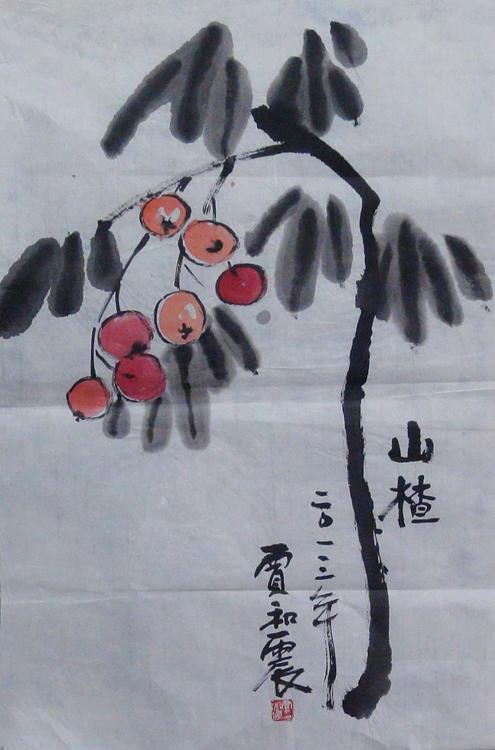 山楂
二〇一三年
賈和震